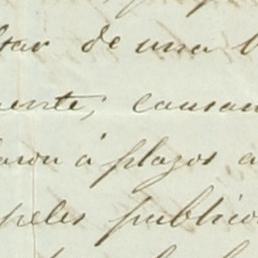 tar de una
ente; causan
aron á plazos a
peles publico